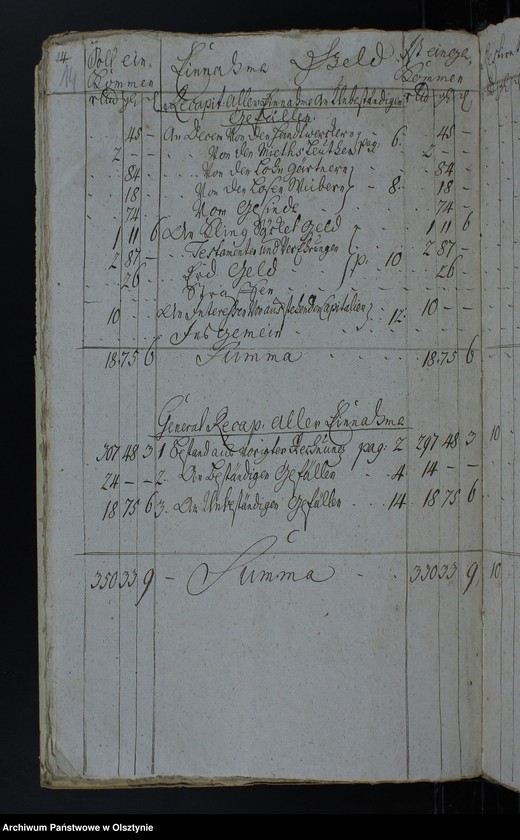 14
14
Soll ein Einnahme Geld Ist einge
kommen kommen
Recapit: Aller Einnahme An Unbeständigen
Gefällen.
45 — An Deren Von den Handwerckern pag: 6. 45 —
2 — — Von den Mieths Leuthen 2 — —
84 — Von den Lohn Gärtnern 84 —
18 — Von den Losen Weibern 8 18 —
74 — Vom Gesinde 74 —
1 11 6 An Kling Säckel Geld 1 11 6
2 87 — Testamenten und Verehrungen p. 10 2 87 —
26 Erd Geld 26
Straffen
10 An Interessen Von ausstehenden Capitalien 12 10 —
Ins Gemein
18 75 6 Summa 18 75 6
General Recap. Aller Einnahme
307 48 3 1 Bestand aus voriger Rechnung pag: 2 297 48 3 10
24 — — 2. An Beständigen Gefällen 4 14 — —
18 75 6 3. An Unbeständigen Gefällen 14 18 75 6
350 33 9 — Summa 330 33 9 10
Archiwum Państwowe w Olsztynie